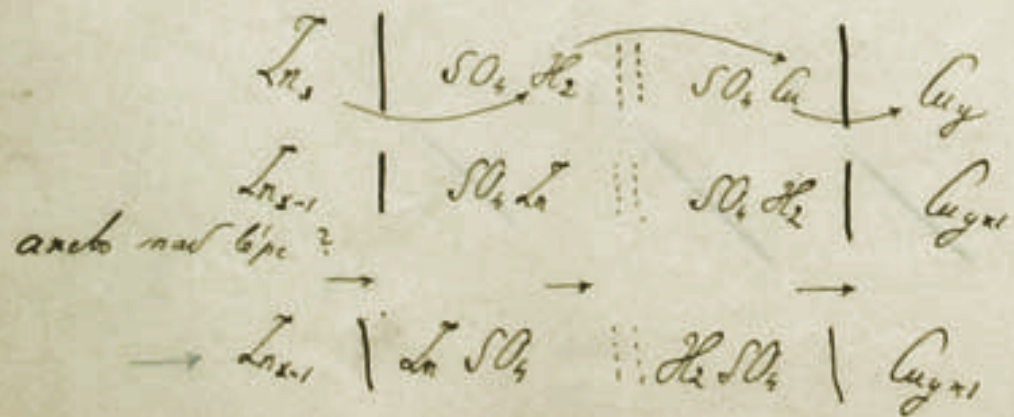 Znx SO4 H2 SO4 Cu Cuy
Znx-1 SO4 Zn SO4 H2 Cuy+1
anebo lépe ?
→ → →
→ Znx-1 Zn SO4 H2 SO4 Cuy+1